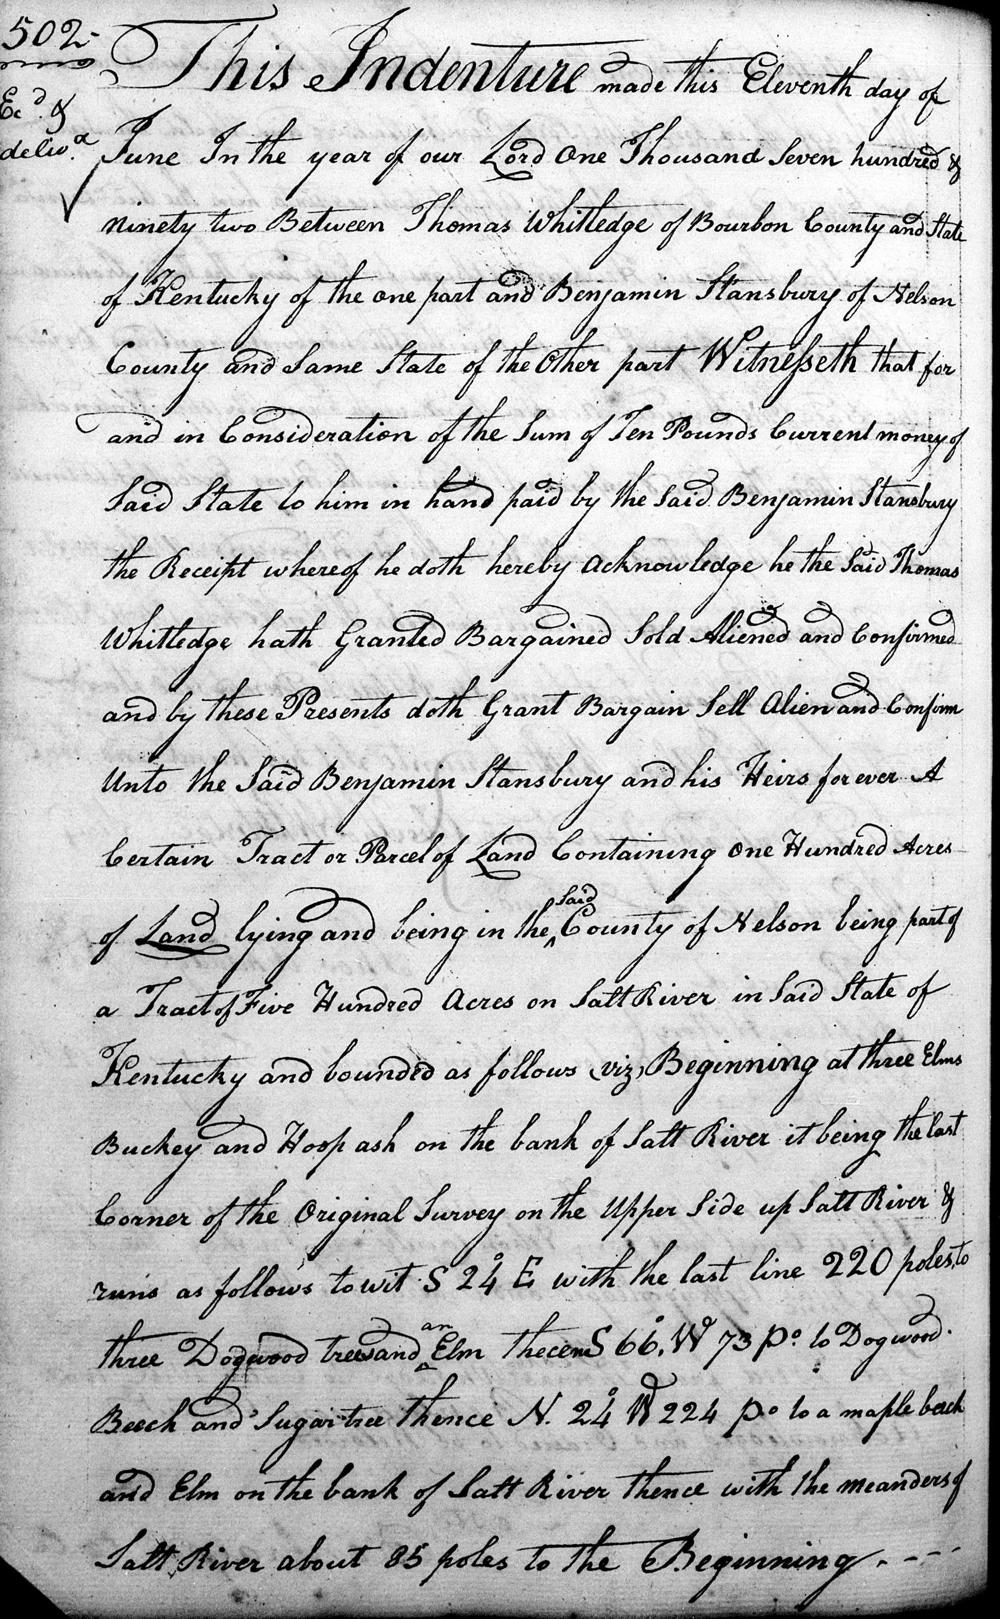 502
Ec.d &
deliv.d
This Indenture made this Eleventh day of
June In the year of our Lord One Thousand Seven hundred &
Ninety two Between Thomas Whitledge of Bourbon County and State
of Kentucky of the one part and Benjamin Stansbury of Nelson
County and Same State of the Other part Witnesseth that for
and in Consideration of the Sum of Ten Pounds Current money of
Said State to him in hand paid by the Said Benjamin Stansbury
the Receipt whereof he doth hereby acknowledge he the Said Thomas
Whitledge hath Granted Bargained Sold Aliened and Confirmed
and by these Presents doth Grant Bargain Sell Alien and Confirm
Unto the Said Benjamin Stansbury and his Heirs for ever A
Certain Tract or Parcel of Land Containing One Hundred Acres
of Land lying and being in the ^Said County of Nelson being part of
a Tract of Five Hundred Acres on Salt River in Said State of
Kentucky and bounded as follows (viz) Beginning at three Elms
Buckey and Hoop ash on the bank of Salt River it being the last
Corner of the Original Survey on the Upper Side up Salt River &
runs as follows to wit S 24° E with the last line 220 poles to
three Dogwood trees and ^an Elm S 66° W 73 Po. to Dogwood.
Beech and Sugar tree thence N. 24° W 224 Po to a maple beech
and Elm on the bank of Salt River thence with the meanders of
Salt River about 85 poles to the Beginning - - - -